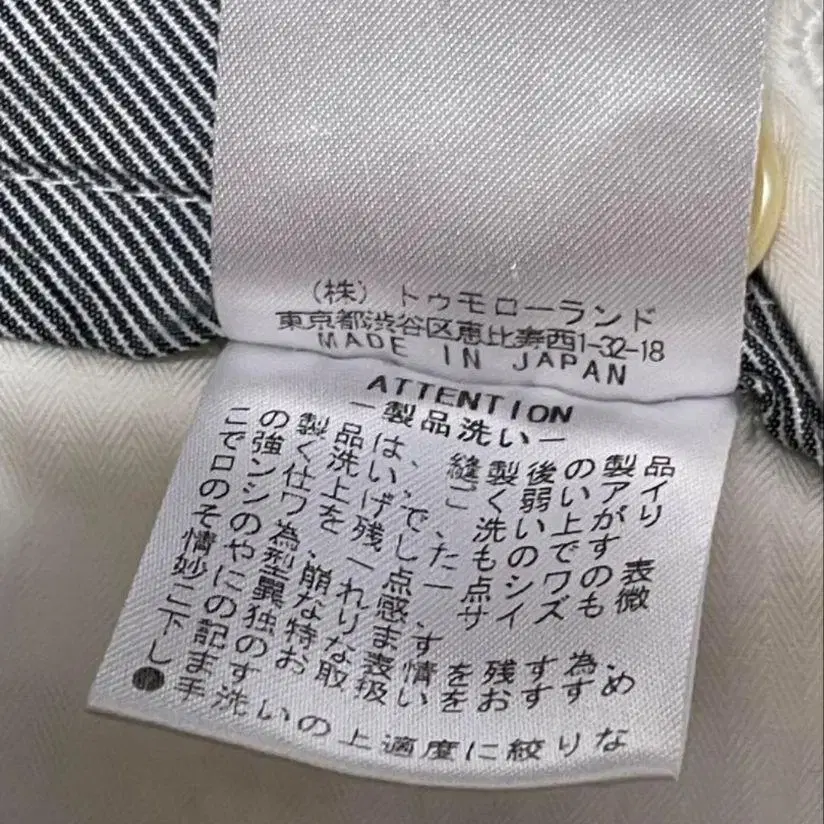 (株) トゥモローランド
東京都渋谷区恵比寿西1-32-18
MADE IN JAPAN
ATTENTION
ー製品洗いー
この製品は、縫製後の製品
で強く洗い、ごく弱いアイ
ロン仕上げで洗い上がり
のシワを残したものです
その為、一点一点シワの表
情や型崩れ感、サイズも微
妙に異なります
この独特な表情を残す為、
下記のお取扱いをおすすめ
します
●手洗いの上適度に絞りな